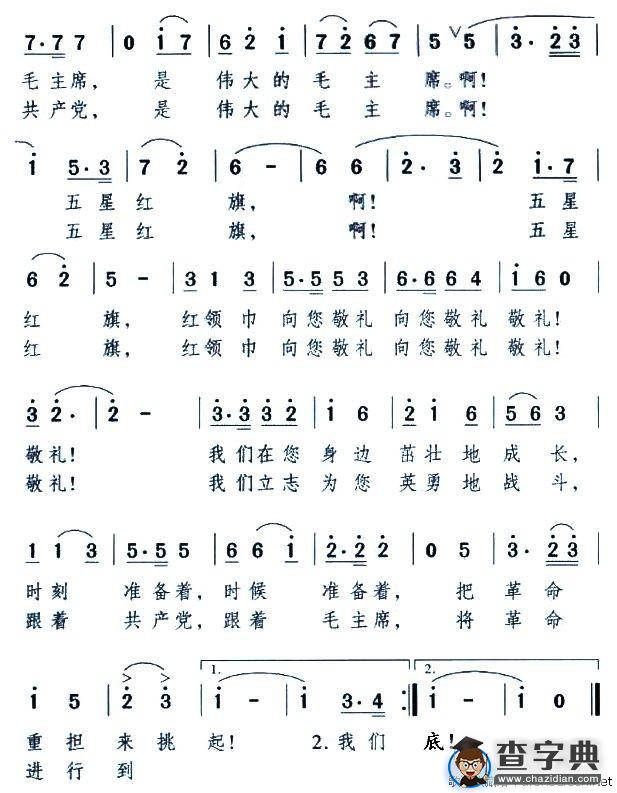 7·77 | 0 i7 | 62i | 7267 | 5 ∨5 | 3·23 |
毛主席， 是 伟大的 毛 主 席。啊！
共产党， 是 伟大的 毛 主 席。啊！
i 5·3 | 7 2 | 6 - | 6 6 | 2·3 | 2 i·7 |
五星 红 旗， 啊！ 五星
五星 红 旗， 啊！ 五星
6 2 | 5 - | 31 3 | 5·553 | 6·664 | i60 |
红 旗， 红领 巾 向您敬礼 向您敬礼 敬礼！
红 旗， 红领 巾 向您敬礼 向您敬礼 敬礼！
3 2· | 2 - | 3·332 | i 6 | 2i 6 | 563 |
敬礼！ 我们在您 身边 茁壮地 成长，
敬礼！ 我们立志 为您 英勇地 战斗，
1 13 | 5·55 | 6 6i | 2·22 | 05 | 3·23 |
时刻 准备着，时候 准备着， 把 革命
跟着 共产党，跟着 毛主席， 将 革命
1. 2.
i 5 | 2 3 | i - | i 3·4 :‖ i - | i 0 ‖
重担来挑起！ 2.我们 底！
进行到
查字典
www.chazidian.com